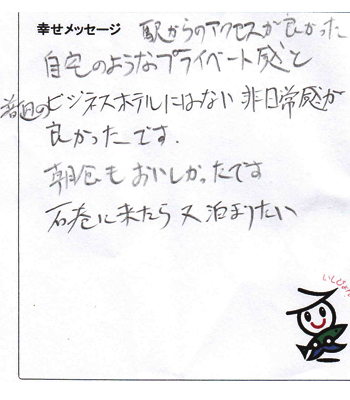 幸せメッセージ 駅からのアクセスが良かった
自宅のようなプライベート感と
普通のビジネスホテルにはない非日常感が
良かったです.
朝食もおいしかったです
石巻に来たら又泊まりたい